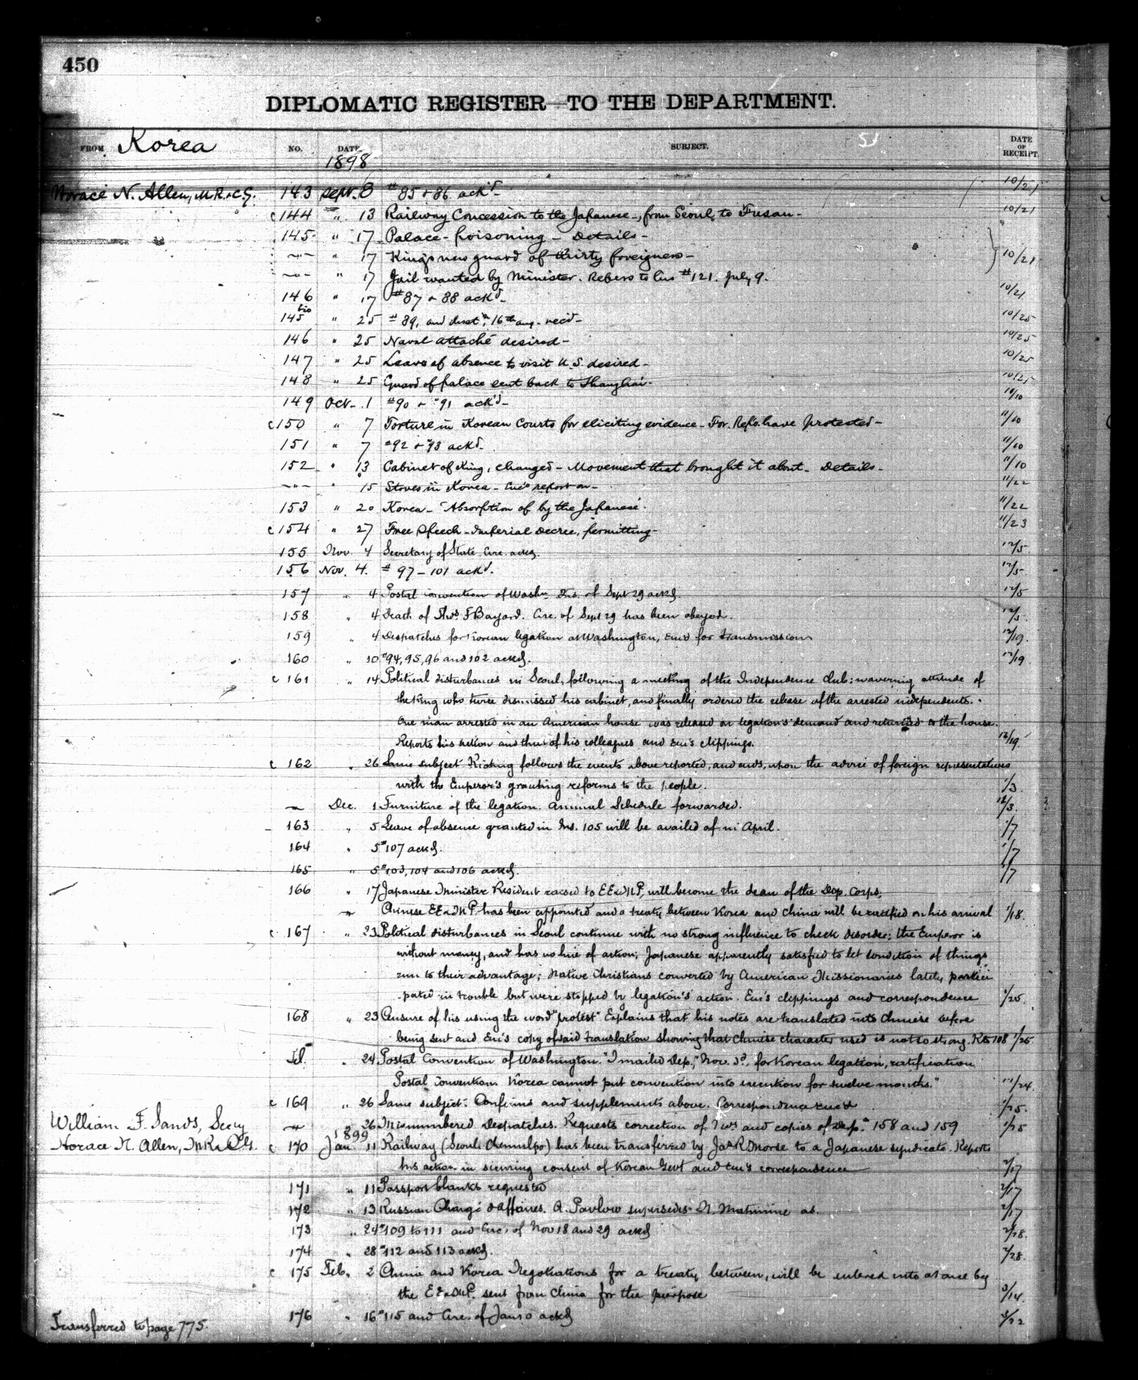 450
DIPLOMATIC REGISTER—TO THE DEPARTMENT.
FROM Korea NO. DATE. SUBJECT. 51 DATE OF RECEIPT.
1898
Horace N. Allen, M.R.&C.G. 143 Sept. 8 #85 & 86 ack'd— 10/21
c 144 " 13 Railway Concession to the Japanese—, from Seoul, to Fusan— 10/21
145 " 17 Palace-poisoning— Details—
—"— " 17 King's new guard of thirty foreigners— 10/21
—"— " 17 Jail wanted by Minister. Refers to Circ #121. July 9.
146 " 17 #87 & 88 ack'd— 10/21
145 bis " 25 # 89, and 16th Aug. rec'd— 10/25
146 " 25 Naval attaché desired— 10/25
147 " 25 Leave of absence to visit U.S. desired— 10/25
148 " 25 Guard of palace sent back to Shanghai— 10/25
149 Oct. 1 #90 & #91 ack'd— 11/10
c 150 " 7 Torture in Korean Courts for eliciting evidence— For. Reps. have protested— 11/10
151 " 7 #92 & 93 ack'd. 11/10
152 " 13 Cabinet of King, changed— Movement that brought it about. Details— 11/10
—"— 15 Stoves in Korea— Enc's report on— 11/22
153 " 20 Korea— "Absorption of by the Japanese". 11/22
c 154 " 27 Free Speech—Imperial Decree, permitting— 11/23
155 Nov. 4 Secretary of State. Circ. ackg. 12/5
156 Nov. 4. # 97–101 ack'd. 12/5
157 " 4 Postal convention of Washn. Ins. of Sept 29 ackg 12/5
158 " 4 Death of Thos F Bayard. Circ. of Sept 29 has been obeyed. 12/5
159 " 4 Despatches for Korean legation at Washington, Enc'd for transmission 12/19
160 " 10 #94, 95, 96 and 102 ackg. 12/19
c 161 " 14 Political disturbances in Seoul, following a meeting of the Independence Club: wavering attitude of
the King who twice dismissed his cabinet, and finally ordered the release of the arrested independents.
One man arrested in an American house was released on legation's demand and returned to the house.
Reports his action and that of his colleagues and Enc's clippings. 12/19
c 162 " 26 Same subject. Rioting follows the events above reported, and ends, upon the advice of foreign representatives
with the Emperor's granting reforms to the people. 1/3
— Dec. 1 Furniture of the legation. Annual Schedule forwarded. 12/3
163 " 5 Leave of absence granted in Ins. 105 will be availed of in April. 1/7
164 " 5 #107 ackg. 1/7
165 5 #103, 104 and 106 ackg. 1/7
166 " 17 Japanese Minister Resident raised to EE & MP, will become the dean of the Dip. Corps,
EE & MP. has been appointed and a treaty between Korea and China will be ratified on his arrival 1/18
c 167 " 23 Political disturbances in Seoul continue with no strong influence to check disorder; the Emperor is
without money, and has no line of action; Japanese apparently satisfied to let condition of things
run to their advantage; Native Christians converted by American Missionaries lately partici
-pated in trouble but were stopped by legation's action. Enc's clippings and correspondence 1/25
168 " 23 Censure of his using the word "protest" Explains that his notes are translated into Chinese before
being sent and Enc's copy of said translation showing that Chinese character used is not so strong. R to 108 1/25
Tel. " 24 Postal Convention of Washington. "I mailed Dep," Nov. 3d, for Korean legation, ratification
Postal convention. Korea cannot put convention into execution for twelve months." 12/24
c 169 " 26 Same subject: Confirms and supplements above. Correspondence enc'd 1/25
William F. Sands, Secy — " 26 Misnumbered Despatches. Requests correction of Nos and copies of Dep. 158 and 159 1/25
1899
Horace N. Allen, M.R.&C.G. c 170 Jan. 11 Railway (Seoul Chemulpo) has been transferred by Jas R Morse to a Japanese syndicate. Reports
his action in securing consent of Korean Govt and enc's correspondence 2/17
171 " 11 Passport blanks requested 2/17
172 " 13 Russian Chargé d'affaires. A. Pavlow supersedes N. Matunine as. 2/17
173 " 24 #109 to 111 and Circ. of Nov 18 and 29 ackg 2/28
174 " 28 #112 and 113 ackg. 2/28
c 175 Feb. 2 China and Korea Negotiations for a treaty between, will be entered into at once by
the EE & MP. sent from China for the purpose 3/14
176 " 16 #115 and Circ. of Jan 10 ackg 3/22
Transferred to page 775.